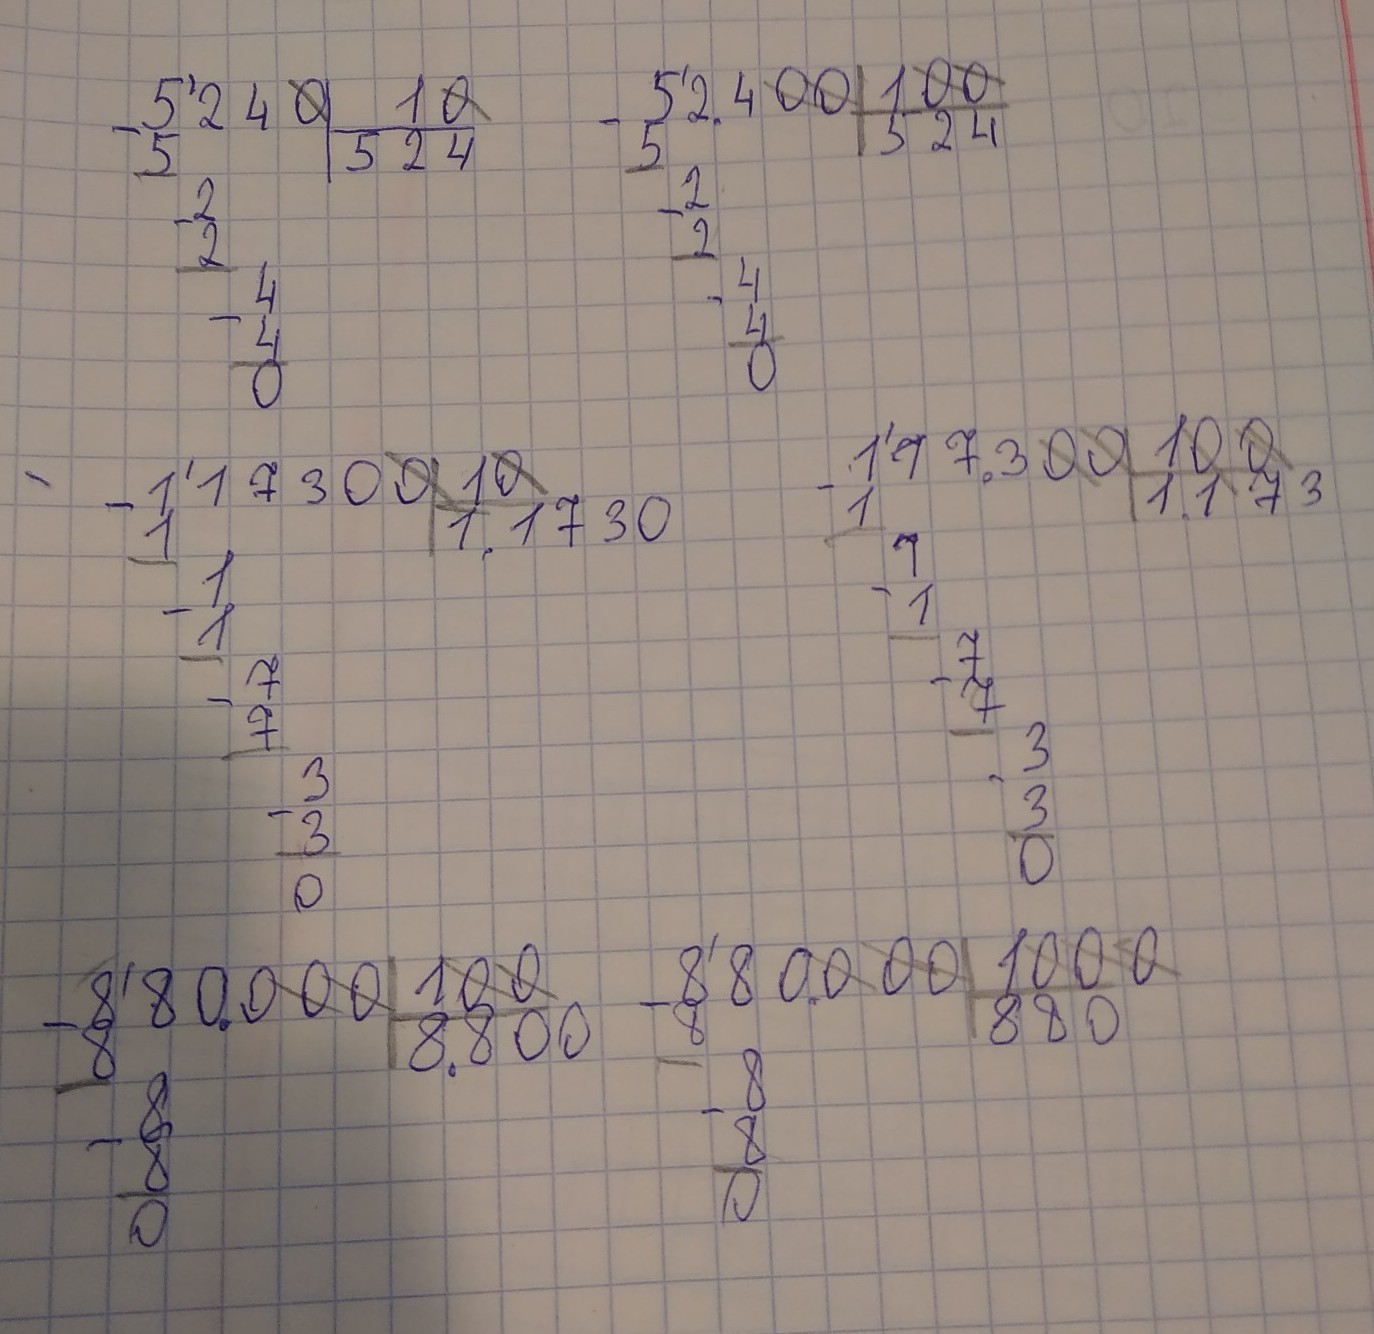 - 5'240 | 10
5 | 524
- 2
2
- 4
4
0
- 52.400 | 100
5 | 524
- 2
2
- 4
4
0
- 1'17300 | 10
1 | 1.1730
- 1
1
- 7
7
- 3
3
0
- 1'17.300 | 100
1 | 1.173
1
- 1
7
- 7
3
- 3
0
- 8'80.000 | 100
8 | 8.800
- 8
8
0
- 8'80.000 | 1000
8 | 880
- 8
8
0